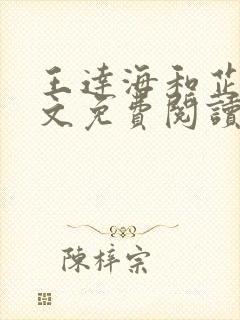 王達海和芷
文免費閱讀
陳梓宗